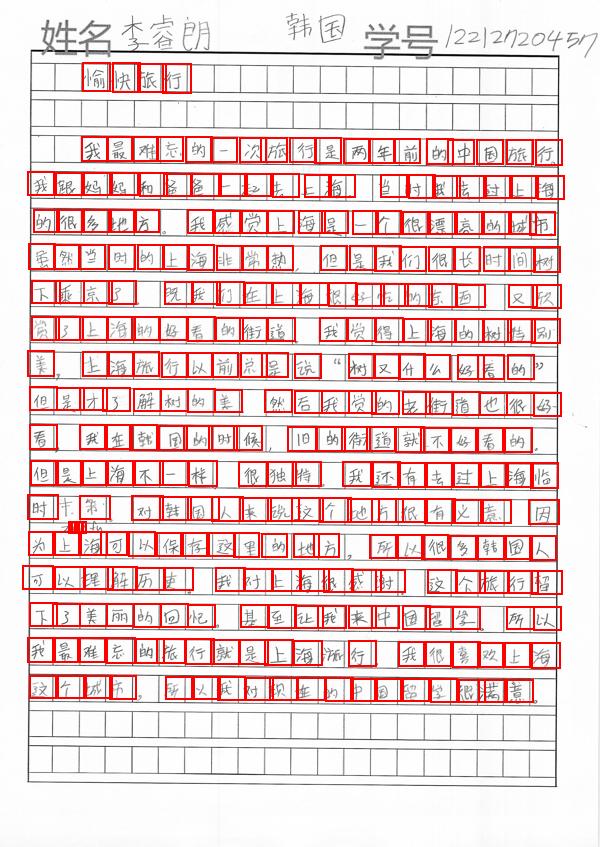 姓名 李睿朗 韩国 学号 12212720457
愉快旅行
我最难忘的一次旅行是两年前的中国旅行。
我跟妈妈和爸爸一起去上海。当时我去过上海
的很多地方。我感觉上海是一个很漂亮的城市
虽然当时的上海非常热，但是我们很长时间树
下乘凉了。既我们在上海很好吃的东西，又欣
赏了上海的好看的街道。我觉得上海的树特别
美，上海旅行以前总是说“树又什么好看的”
但是才了解树的美，然后我觉的老街道也很好
看，我在韩国的时候，旧的街道就不好看的。
但是上海不一样，很独特。我还有去过上海临
时
对韩国人来说这个地方很有义意，因
为上海可以保存这里的地方，所以很多韩国人
可以理解历史。我对上海很感谢。这个旅行留
下了美丽的回忆。甚至让我来中国留学。所以
我最难忘的旅行就是上海旅行。我很喜欢上海
这个城市，所以我对现在的中国留学很满意。